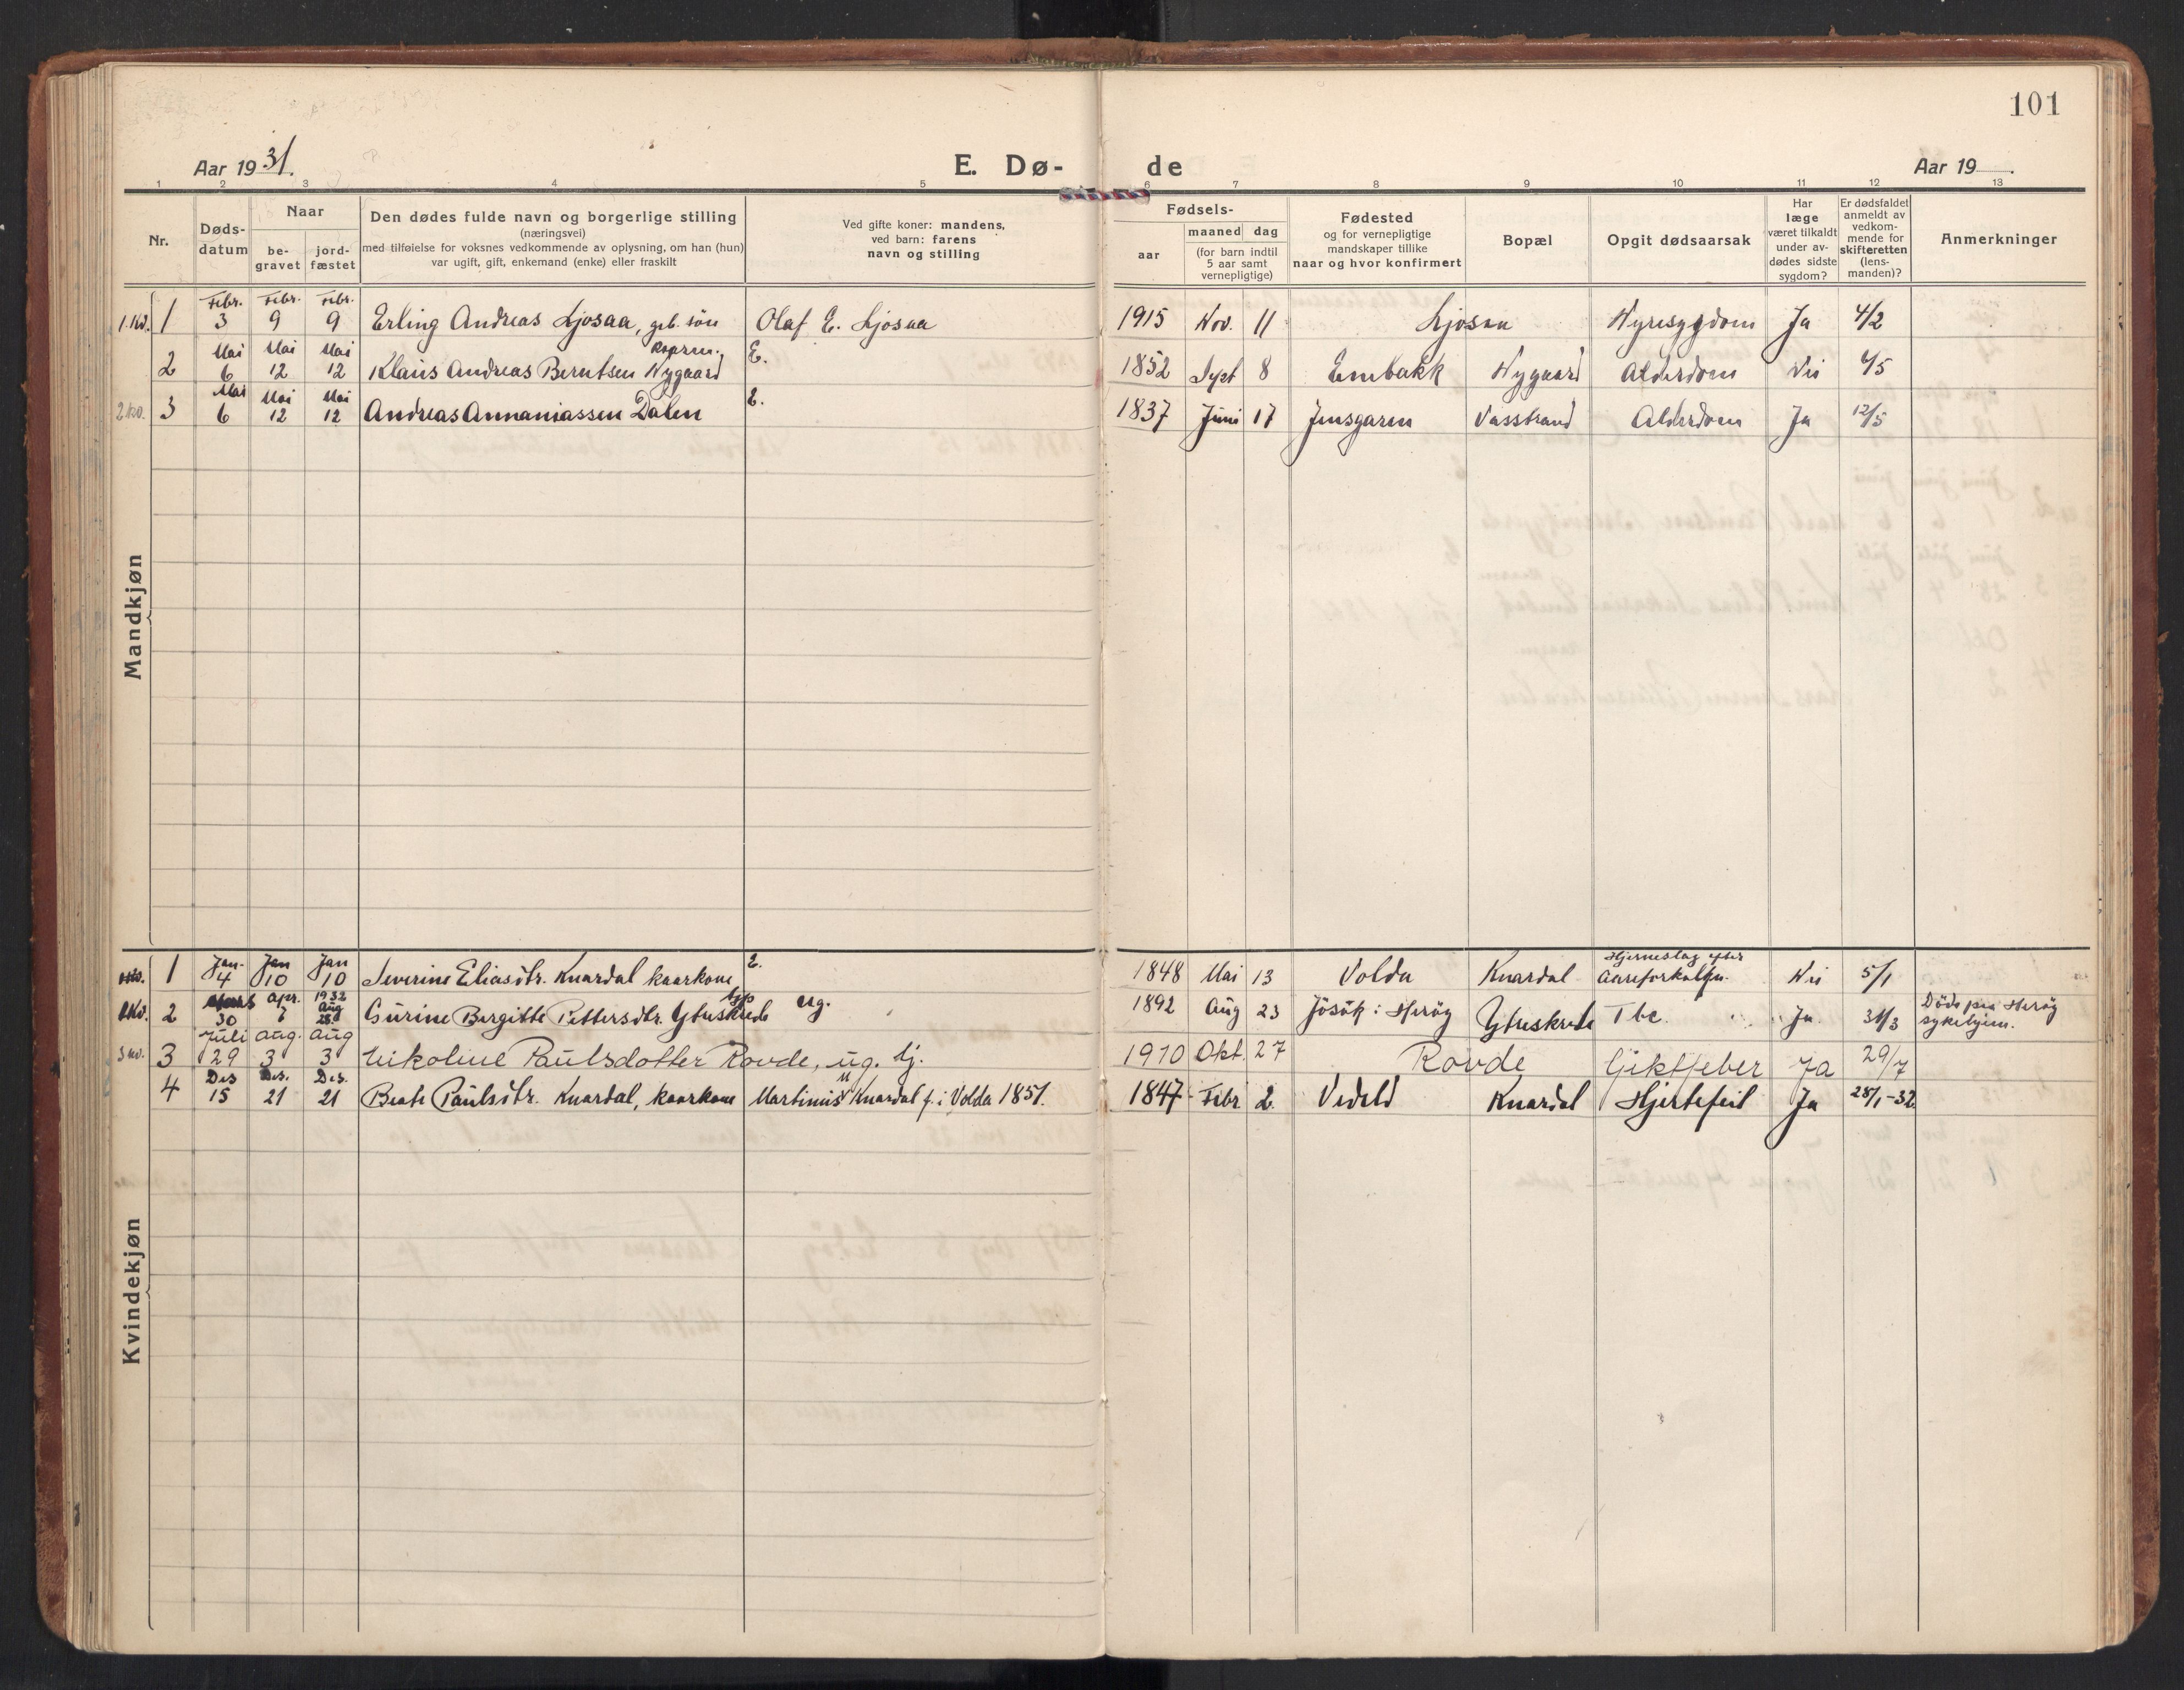 101
Aar 1931.
E. Dø-
de
Aar 19
1 2 3 4 5 6 7 8 9 10 11 12 13
Nr.
Døds-
datum
Naar
be-
gravet
jord-
fæstet
Den dødes fulde navn og borgerlige stilling
(næringsvei)
med tilføielse for voksnes vedkommende av oplysning, om han (hun)
var ugift, gift, enkemand (enke) eller fraskilt
Ved gifte koner: mandens,
ved barn: farens
navn og stilling
Fødsels-
aar
maaned dag
(for barn indtil
5 aar samt
vernepligtige)
Fødested
og for vernepligtige
mandskaper tillike
naar og hvor konfirmert
Bopæl
Opgit dødsaarsak
Har
læge
været tilkaldt
under av-
dødes sidste
sygdom?
Er dødsfaldet
anmeldt av
vedkom-
mende for
skifteretten
(lens-
manden)?
Anmerkninger
Mandkjøn
1 Febr. 3 Febr. 9 Febr. 9 Erling Andreas Ljosaa, gb. søn Olaf E. Ljosaa 1915 Nov. 11 Ljosaa Nyresygdom Ja 4/2
2 Mai 6 Mai 12 Mai 12 Klaus Andreas Berntsen Nygaard E. 1852 Sept 8 Embakk Nygaard Alderdom Nei 6/5
3 Mai 6 Mai 12 Mai 12 Andreas Annaniassen Dalen E. 1837 Juni 17 Jensgaren Vasstrand Alderdom Ja 12/5
Kvindekjøn
1 Jan. 4 Jan 10 Jan 10 Severine Eliasdtr. Knardal kaarkone E. 1848 Mai 13 Volda Knardal Hjerneslag efter
Aareforkalkn. Nei 5/1
2 Mars 30 Apr. 7 1932 Aug 28. Gurine Birgitte Pettersdtr. Ytreskrede ug. 1892 Aug 23 Jösök i Heröy Ytreskrede Tbc. Ja 31/3 Död paa Heröy
sykehjem.
3 Juli 29 Aug. 3 Aug 3 Nikoline Paulsdotter Rovde, ug. tj. 1910 Okt. 27 Rovde Giktfeber Ja 29/7
4 Des 15 Des. 21 Des. 21 Beate Paulsdtr. Knardal, kaarkone Martinus M Knardal f. i Volda 1851. 1847 Febr 2. Vedeld Knardal Hjertefeil Ja 28/1-32